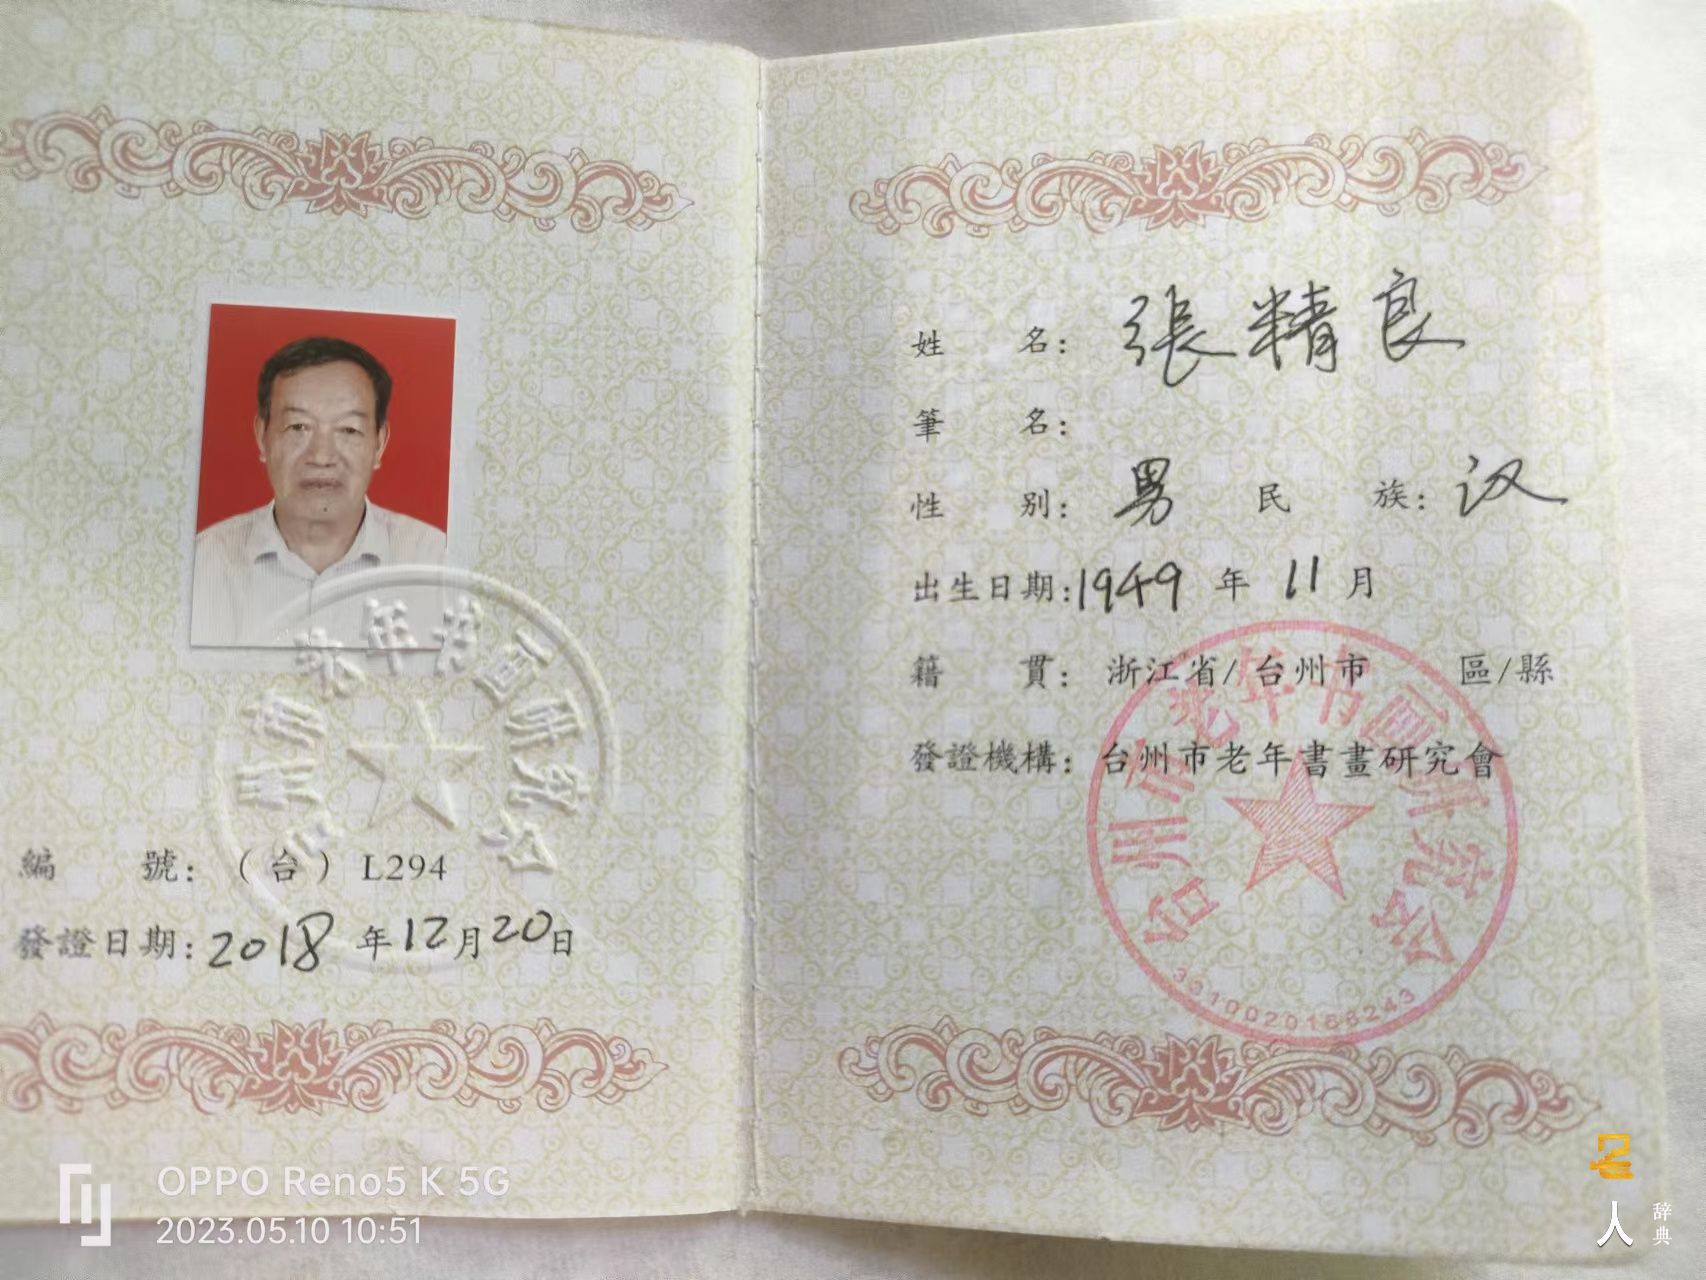 編 號：（台）L294
發證日期：2018 年 12月20日
姓 名： 張精良
筆 名：
性 别： 男 民 族： 汉
出生日期：1949 年 11 月
籍 貫： 浙江省/台州市 區/縣
發證機構：台州市老年書畫研究會
台州市老年书画研究会
33100201668243
台州市老年书画研究会
OPPO Reno5 K 5G
2023.05.10 10:51
名
人
辞典